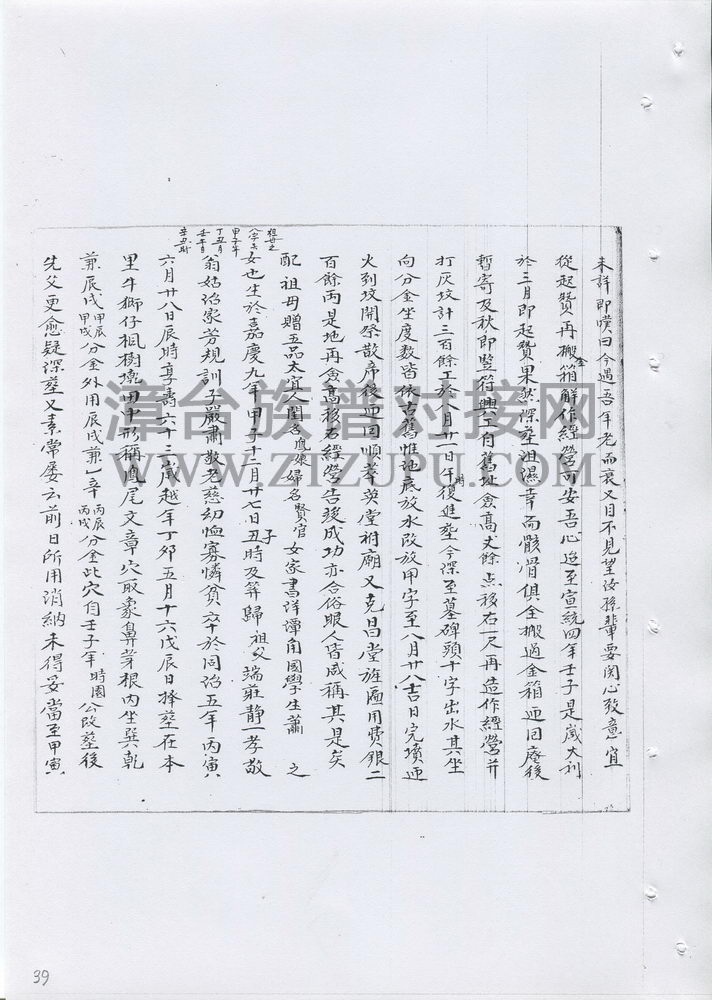 未詳即嘆曰今遇吾年老而衰又目不見望汝孫輩要関心致意宜
從起賛再搬金箱觧作經營可安吾心迨至宣統四年壬子是歲大利
於三月即起賛果然深塟沮濕幸而骸滑俱全搬過金箱迎回庵後
暫寄及秋即竪符興工自舊址倉高丈餘点移右一尺再造作經營并
打灰坟計三百餘工於八月廿一日午時復進塟今深至墓碑頭十字出水其坐
向分金坐度數皆依古舊惟池底放水改放甲字至八月廿八吉日完墳迎
火到坟開祭散席後迎回順華英堂祠廟又克昌堂旌匾用費銀二
百餘両是地再倉高移右經營告竣成功亦合俗眼人皆咸稱其是矣
配 祖母贈五品太宜人閨名 婦名賢官 女家書洋潭角國學生蕭 之
女也生於嘉慶九年甲子十二月廿七日丑子時及笄歸 祖父端莊静一孝敬
祖母之
八字
甲子年
丁丑月
壬午日
辛丑時
翁姑治家芳規訓子嚴肅敬老慈幼恤寡憐貧卒於同治五年丙寅
六月廿八日辰時享壽六十三歲越年丁卯五月十六戊辰日擇塟在本
里牛獅仔楓樹壠田中形稱鳳尾文章穴取象鼻芽根内坐巽乾
兼辰戌甲辰甲戌分金外用辰戌兼乀辛丙辰丙戌分金此穴自壬子年時園公改塟後
先父更愈疑深塟又素常屡云前日所用消納未得妥當至甲寅
漳台族谱对接网
WWW.ZIZUPU.COM
39